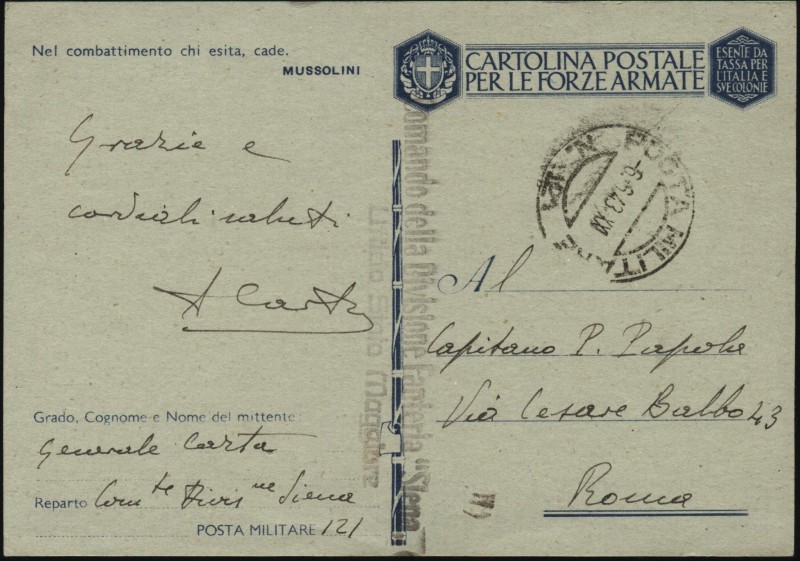 Nel combattimento chi esita, cade.
MUSSOLINI
Grazie e
cordiali saluti
A Carta
Grado, Cognome e Nome del mittente
Generale Carta
Reparto Com te Divis ne Siena
POSTA MILITARE 121
Comando della Divisione Fanteria "Siena"
Ufficio Stato Maggiore
CARTOLINA POSTALE
PER LE FORZE ARMATE
ESENTE DA
TASSA PER
L'ITALIA E
SVE COLONIE
POSTA MILITARE
6·5·43·XXI
Al
Capitano P.
Via Cesare Balbo 43
Roma